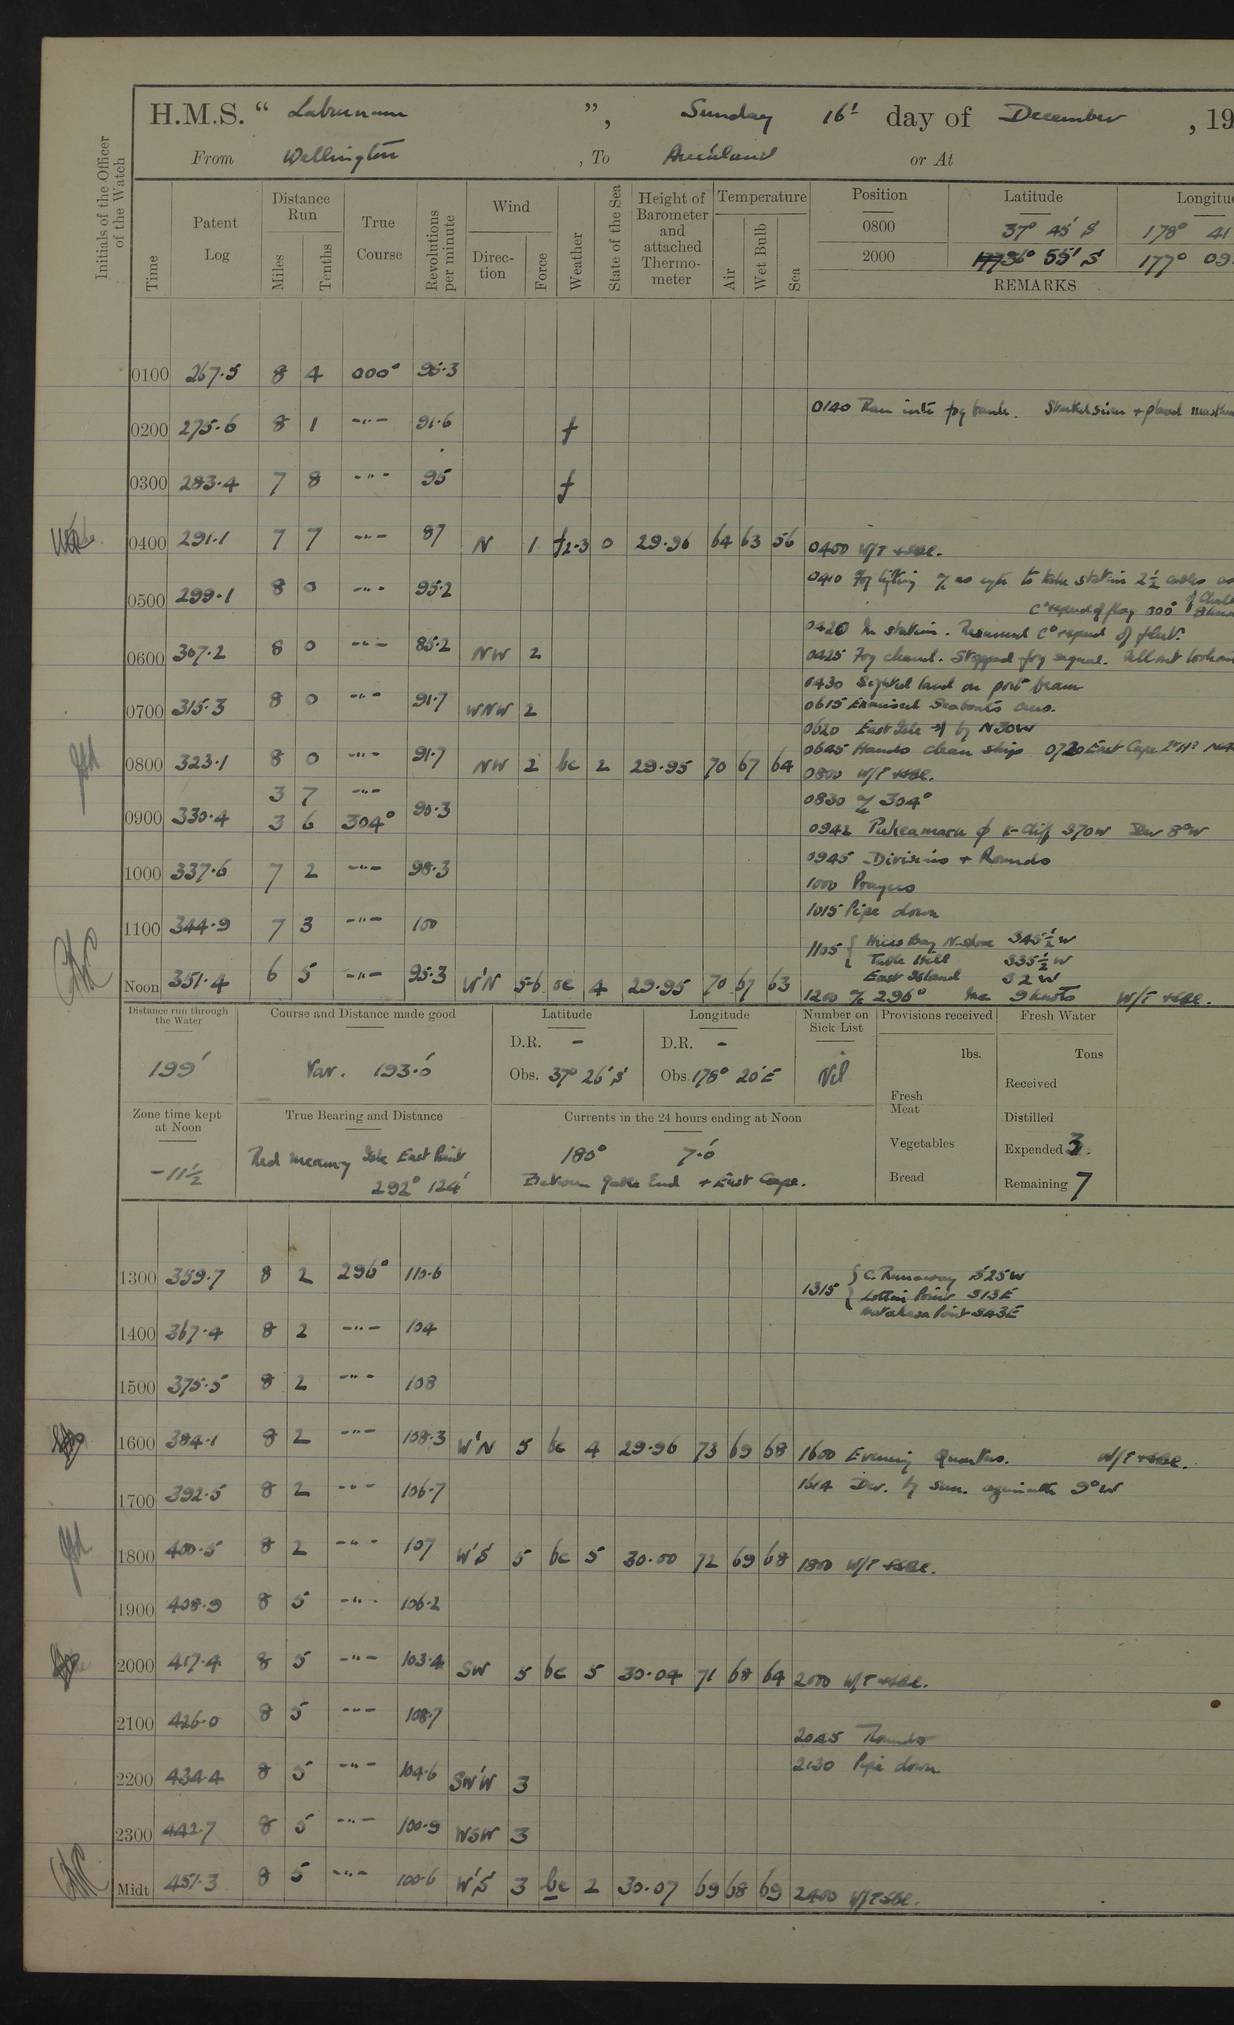 H.M.S. “ Laburnum ”, Sunday 16th day of December , 19
From Wellington , To Auckland or At
Initials of the Officer of the Watch
Time
Patent Log
Distance Run
Miles
Tenths
True Course
Revolutions per minute
Wind
Direction
Force
Weather
State of the Sea
Height of Barometer and attached Thermometer
Temperature
Air
Wet Bulb
Sea
Position Latitude Longitu
0800 37° 45' S 178° 41
2000 36° 55' S 177° 09
REMARKS
0100 267.5 8 4 000° 95.3
0140 Ran into fog bank.
0200 275.6 8 1 -"- 91.6 f
0300 283.4 7 8 -"- 95 f
0400 291.1 7 7 -"- 87 N 1 f2-3 0 29.96 64 63 56 0400 W/T
0410 Fog lifting to take station 2½ cables
0500 299.1 8 0 -"- 95.2
0420 In station. Resumed Co & speed of fleet.
0600 307.2 8 0 -"- 85.2 NW 2 0425 Fog cleared. Stopped fog signal.
0430 Sighted land on port beam
0700 315.3 8 0 -"- 91.7 WNW 2 0615 Exercised Seaboats crews.
0620 East Isle by N30W
0645 Hands clean ship 0720 East Cape
0800 323.1 8 0 -"- 91.7 NW 2 bc 2 29.95 70 67 64 0800 W/T
3 7 -"- 0830 a/c 304°
0900 330.4 3 6 304° 90.3
0942 Pukeamaru
0945 Divisions + Rounds
1000 337.6 7 2 -"- 98.3 1000 Prayers
1015 Pipe down
1100 344.9 7 3 -"- 100
1105 { Hicks Bay N. shore S45½W
Table Hill S35½W
East Island S2W
Noon 351.4 6 5 -"- 95.3 W'N 5-6 bc 4 29.95 70 67 63 1200 a/c 296° Inc 9 knots W/T
Distance run through the Water Course and Distance made good Latitude Longitude Number on Sick List Provisions received Fresh Water
D.R. - D.R. - lbs. Tons
199' Var. 193.0' Obs. 37° 26' S Obs. 178° 20' E Nil Received
Fresh Meat
Zone time kept at Noon True Bearing and Distance Currents in the 24 hours ending at Noon Distilled
Red Mercury Isle East Point 180° 7.0' Vegetables Expended 3.
-11½ 292° 124' Between Gable End + East Cape. Bread Remaining 7
1300 359.7 8 2 296° 110.6
1315 { C. Runaway S25W
Lottin Point S13E
Matakaoa Point S43E
1400 367.4 8 2 -"- 104
1500 375.5 8 2 -"- 108
1600 384.1 8 2 -"- 108.3 W'N 5 bc 4 29.96 73 69 68 1600 Evening Quarters. W/T
1700 392.5 8 2 -"- 106.7 1614 Dev. by sun. azimuth 9°W
1800 400.5 8 2 -"- 107 W'S 5 bc 5 30.00 72 69 68 1800 W/T
1900 408.9 8 5 -"- 106.2
2000 417.4 8 5 -"- 103.4 SW 5 bc 5 30.04 71 68 64 2000 W/T
2100 426.0 8 5 -"- 108.7
2045 Rounds
2130 Pipe down
2200 434.4 8 5 -"- 104.6 SW'W 3
2300 442.7 8 5 -"- 100.9 WSW 3
Midt 451.3 8 5 -"- 100.6 W'S 3 bc 2 30.07 69 68 69 2400 W/T